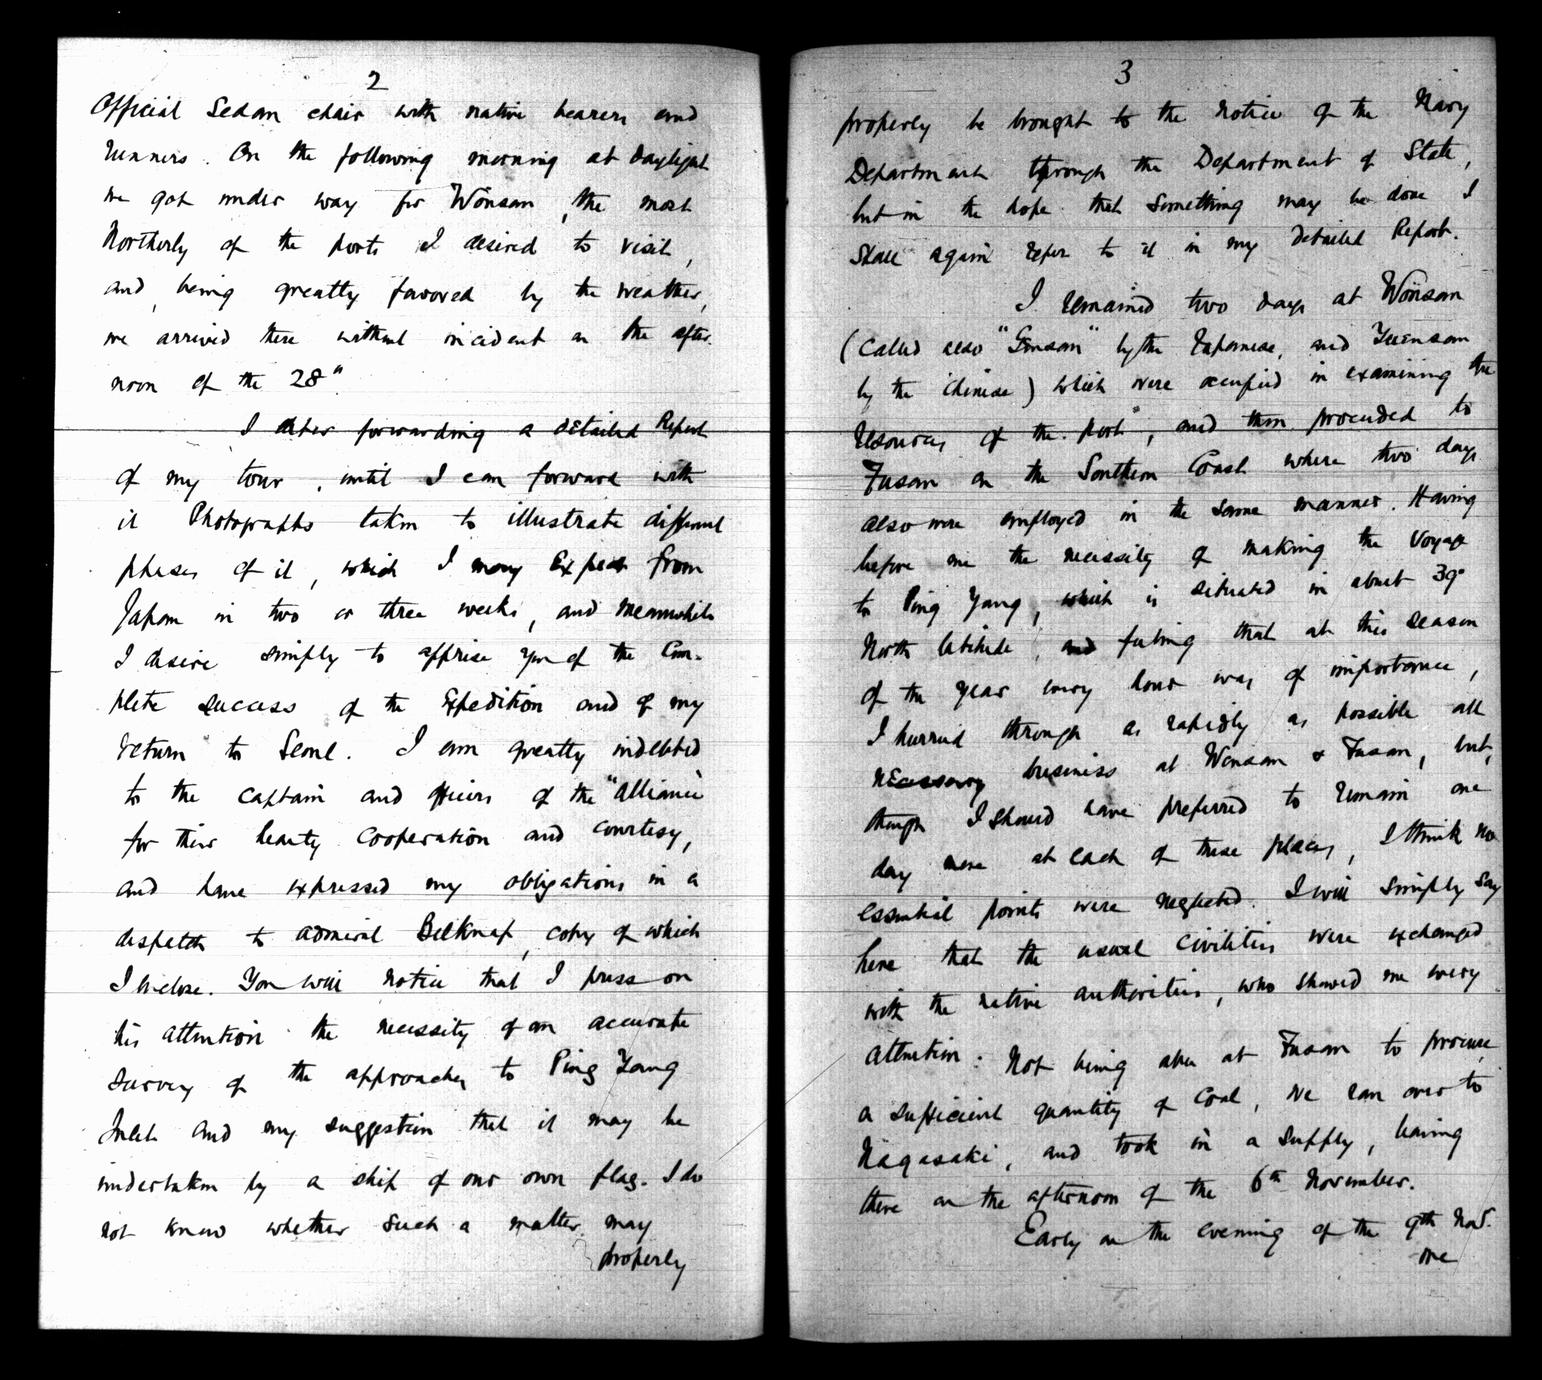 2
Official Sedan chair with native bearers and
runners. On the following morning at daylight
we got under way for Wönsan, the most
Northerly of the ports I desired to visit,
and, being greatly favored by the weather,
we arrived there without incident on the after-
noon of the 28"
I defer forwarding a detailed Report
of my tour, until I can forward with
it Photographs taken to illustrate different
phases of it, which I may Expect from
Japan in two or three weeks, and meanwhile
I desire simply to apprise you of the Com-
plete success of the Expedition and of my
return to Seoul. I am greatly indebted
to the captain and officers of the "Alliance"
for their hearty cooperation and courtesy,
and have expressed my obligations in a
despatch to Admiral Belknap, copy of which
I inclose. You will notice that I press on
his attention the necessity of an accurate
survey of the approaches to Ping Yang
Inlet and my suggestion that it may be
undertaken by a ship of our own flag. I do
not know whether such a matter may
properly
3
properly be brought to the notice of the Navy
Department through the Department of State,
but in the hope that something may be done I
shall again refer to it in my detailed Report.
I remained two days at Wönsan
(called also "Gensan" by the Japanese, and Yuensan
by the Chinese) which were occupied in examining the
resources of the port, and then proceeded to
Fusan on the Southern Coast where two days
also were employed in the same manner. Having
before me the necessity of making the voyage
to Ping Yang, which is situated in about 39°
North latitude, and feeling that at this season
of the year every hour was of importance,
I hurried through as rapidly as possible all
necessary business at Wonsan & Fusan, but,
though I should have preferred to remain one
day more at each of these places, I think no
essential points were neglected. I will simply say
here that the usual civilities were exchanged
with the native authorities, who showed me every
attention. Not being able at Fusan to procure
a sufficient quantity of coal, we ran over to
Nagasaki, and took in a supply, leaving
there on the afternoon of the 6th November.
Early on the evening of the 9th Nov.
we